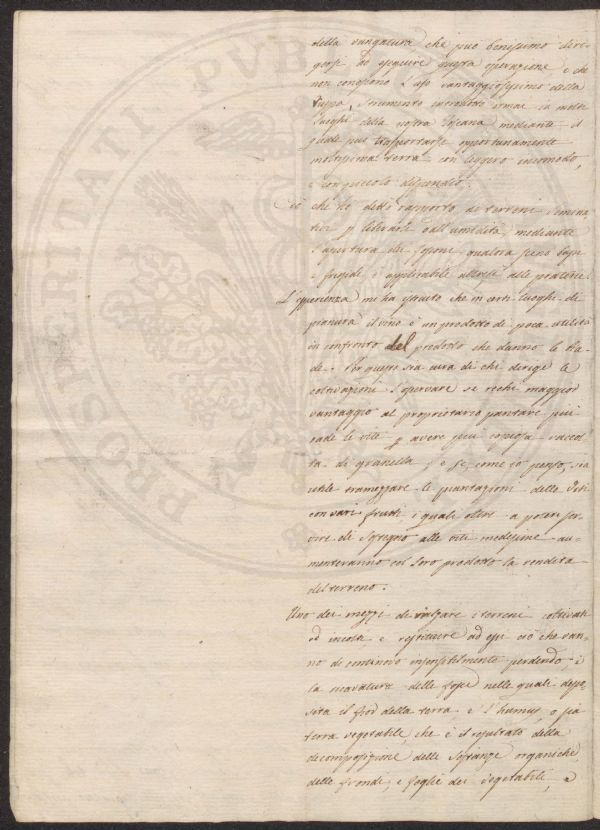 della vangatura che può benissimo diri-
gersi ad eseguire questa operazione e che
non conoscono l'uso vantaggiosissimo della
Ruspa, strumento introdotto ormai in molti
luoghi della nostra Toscana mediante il
quale può trasportarsi opportunamente
moltissima terra con leggero incomodo,
e con piccolo dispendio.
Ciò che ho detto rapporto ai terreni semina-
tivi p liberarli dall'umidità mediante
l'apertura dei fossoni qualora sieno bassi
e frigidi è applicabile altresì alle praterie.
L'esperienza mi ha istruito che in certi luoghi di
pianura il vino è un prodotto di poca utilità
in confronto del prodotto che danno le Bia-
de. Per questo sia cura di chi dirige le
coltivazioni l'osservare se rechi maggior
vantaggio al proprietario piantare più
rade le viti p avere più copiosa raccol-
ta di granella, e se, come io penso, sia
utile tramezzare le piantazioni delle Viti
con vari frutti i quali oltre a poter ser-
vire di sostegno alle viti medesime au-
menteranno col loro prodotto la rendita
del terreno.
Uno dei mezzi di rialzare i terreni coltivati
ed incolti e restituire ad essi ciò che van-
no di continuo insensibilmente perdendo, è
la ricavatura delle fosse nelle quali depo-
sita il fior della terra e l'humus, o sia
terra vegetabile, che è il resultato della
decomposizione delle sostanze organiche,
delle frondi, e foglie dei vegetabili, e
PROSPERITATI PVBLICAE